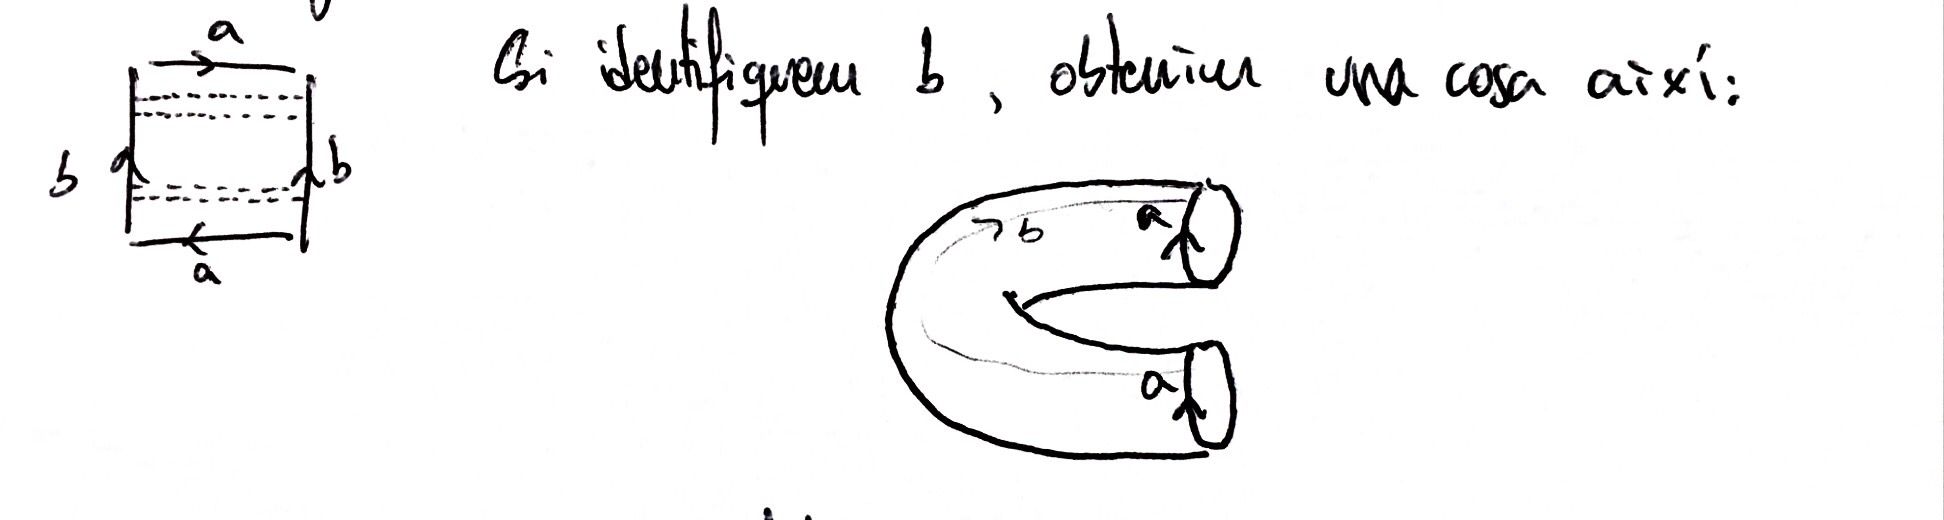 a
Si identifiquem b, obtenim una cosa així:
b b
a
b a
a